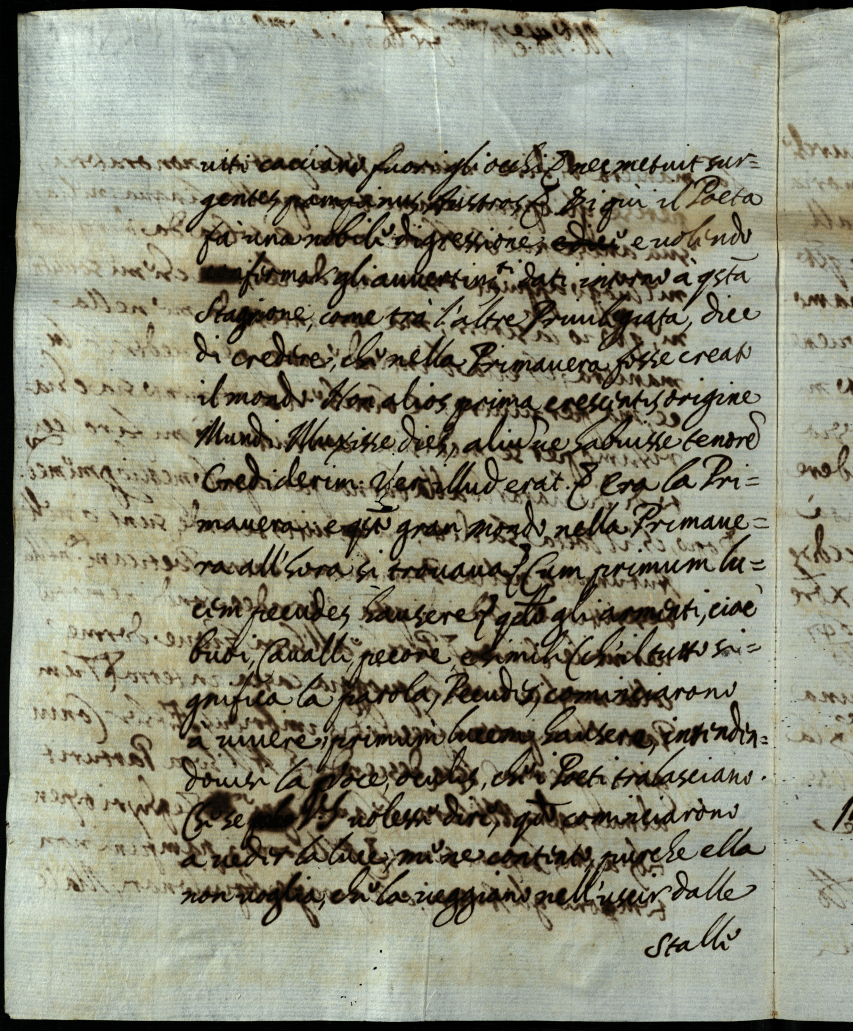 uiti cacciano fuori gli occhi nec metuit sur=
gentes pampinus Austros Di qui il Poeta
fà una nobile digressione, e uolendo
firmar gli auuertim.ti dati intorno à q̃sta
Stagione, come trà l'altre Priuilegiata, dice
di credere, che nella Primauera fosse creato
il mondo. Non alios prima crescentis origine
Mundi Illuxisse dies, aliũue habuisse tenorẽ
Crediderim: Ver illud erat. Era la Pri=
mauera, e q̃sto gran mondo nella Primaue=
ra all'hora si trouaua Cum primum lu=
cem pecudes hausere q̃do gli armenti, cioè
buoi, Caualli, pecore, e simili (che il tutto si=
gnifica la parola, Pecudes, cominciarono
a uiuere; primum lucem hausere, intenden=
douisi la uoce, oculis, che i Poeti tralasciano.
Che se V.S. uolesse dire, q̃do cominciarono
a ueder la luce, me ne contento, purche ella
non uoglia, che la ueggiano nell'uscir dalle
Stalle